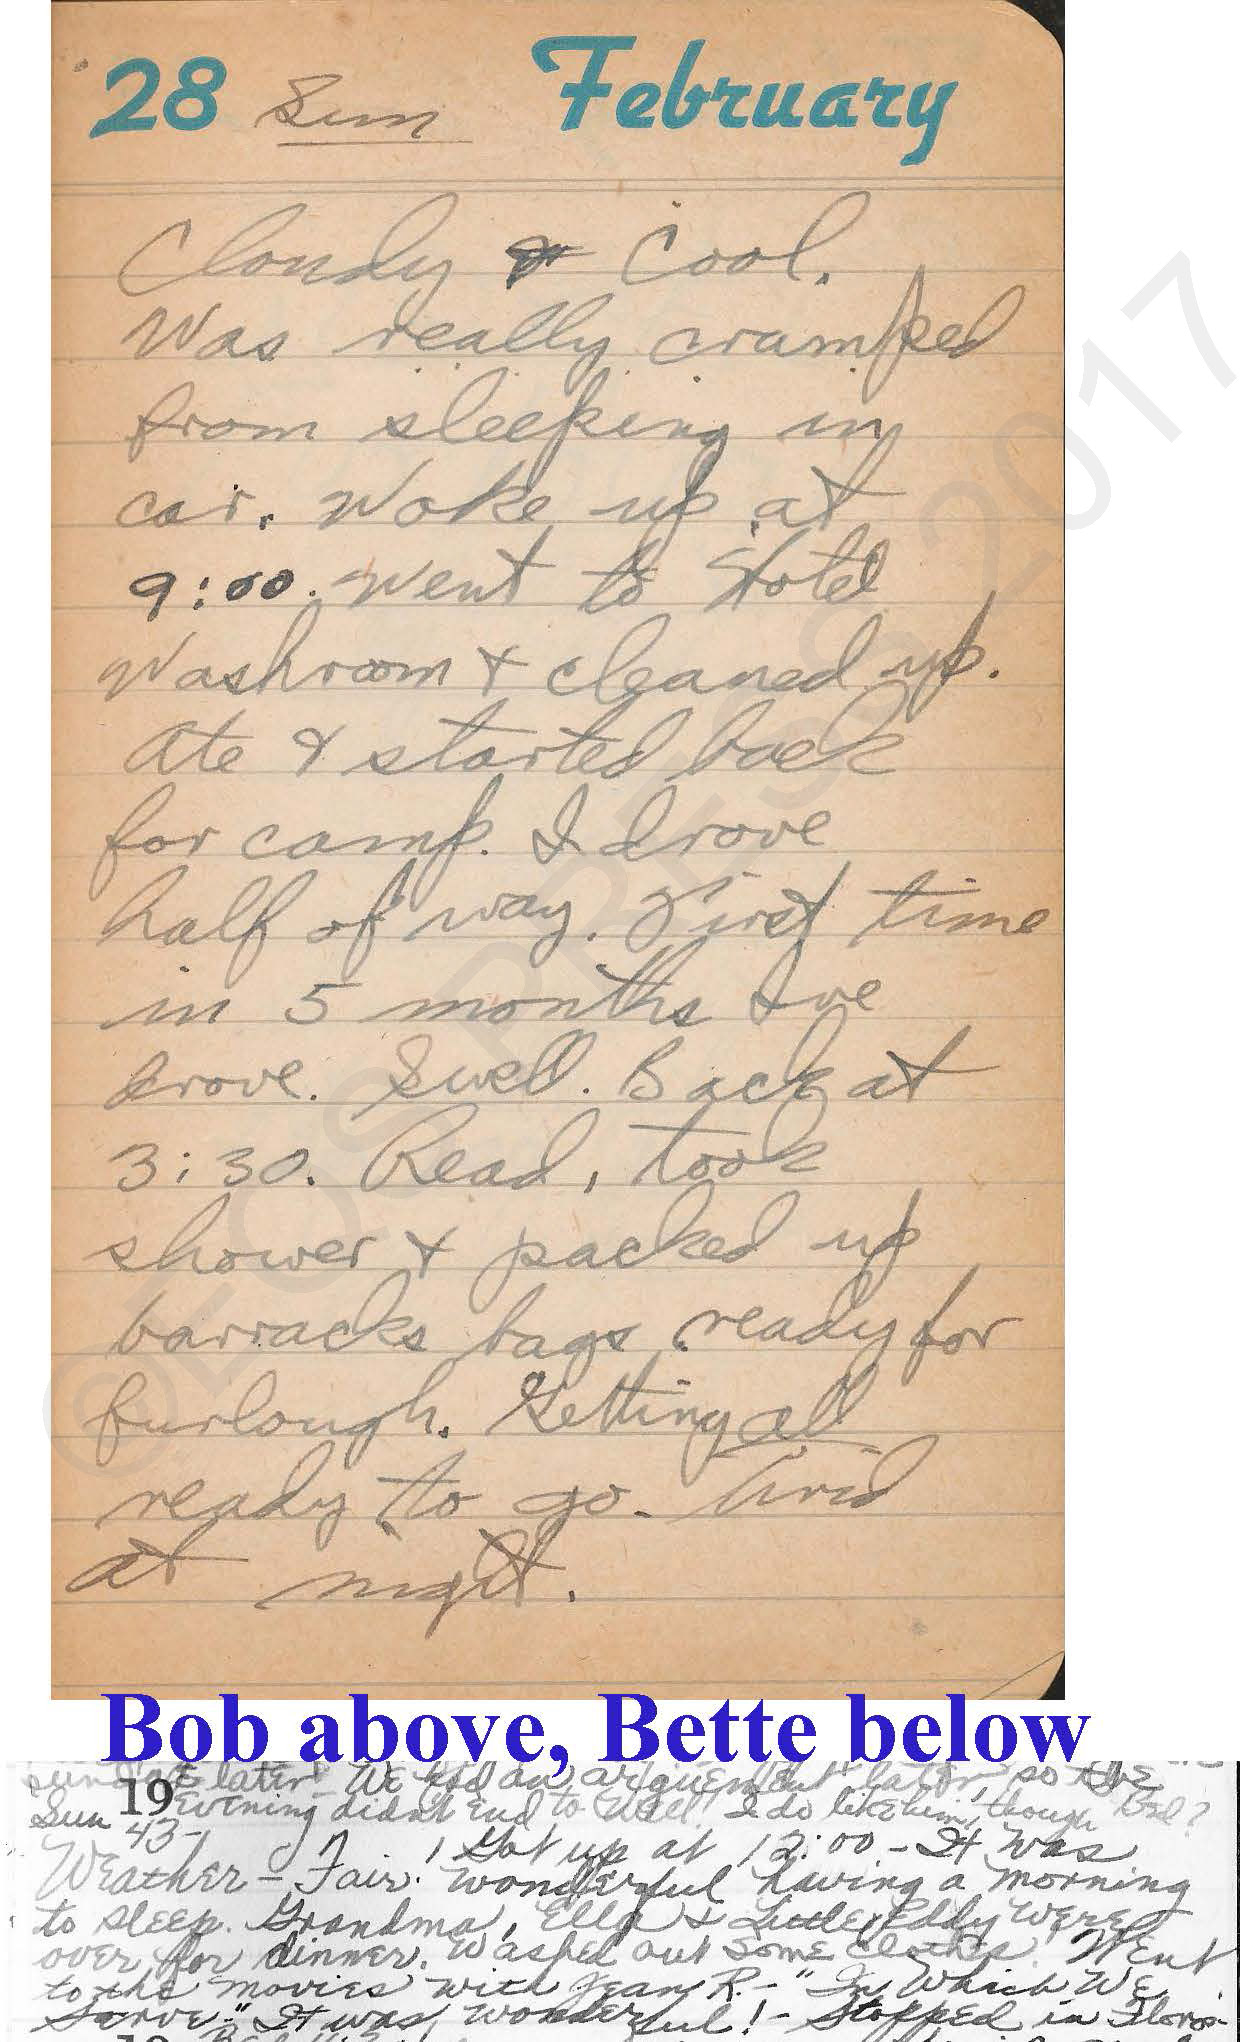 28 Sun February
Cloudy & Cool.
Was really cramped
from sleeping in
car. Woke up at
9:00. Went to Hotel
Washroom & cleaned up.
Ate & started back
for camp. I drove
half of way. First time
in 5 months I've
drove. Swell. Back at
3:30. Read, took
shower & packed up
barracks bags ready for
furlough. Getting all
ready to go.
at night.
©EQS PRESS 2017
Bob above, Bette below
later. We had an arguement later, so the
Sun 19 Evening didn't End to well! I do like him, though
43- ! Got up at 12:00 - It was
Weather - Fair. wonderful having a morning
to sleep. Grandma, Ella & Little Eddy were
over for dinner. Washed out some clothes. Went
to the movies with Jean R. - "In Which We
Serve." It was wonderful! - Stopped in Floros-